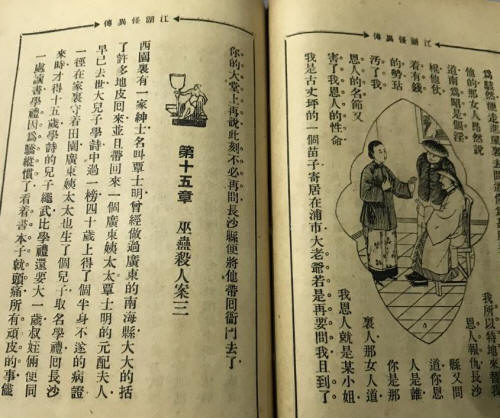 江湖怪異傳
道南爲昭是個淫
棍他仗
着有錢
的勢玷
汚了我
恩人的名節又
害了我恩人的性命
我所以特地來替我
恩人報仇長沙
縣又問
道你恩
人是誰
你是那
裏人那女人道
我恩人就是某小姐
我是古丈坪的一個苗子寄居在浦市大老爺若是再要問我且到了
江湖怪異傳
你的大堂上再說此刻不必再問長沙縣便將他帶回衙門去了
第十五章 巫蠱殺人案二
西園裏有一家紳士名叫覃士明曾經做過廣東的南海縣大大的括
了許多地皮回來並且帶回來一個廣東姨太太覃士明的元配夫人
早已去世大兒子學詩中過一榜四十歲上得了個半身不遂的病證
徑在家裏守着田園廣東姨太太也生了個兒子取名學禮回長沙
來時才得十五歲學詩的兒子繼武比學禮還要大一歲叔姪倆便同
一處讀書學禮因爲驕縱慣了看着書本子就頭痛所有頑皮的事儘